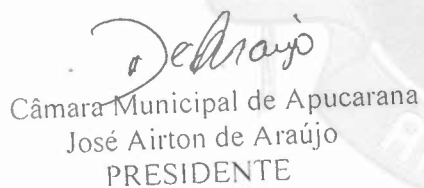 DeAraújo
Câmara Municipal de Apucarana
José Airton de Araújo
PRESIDENTE